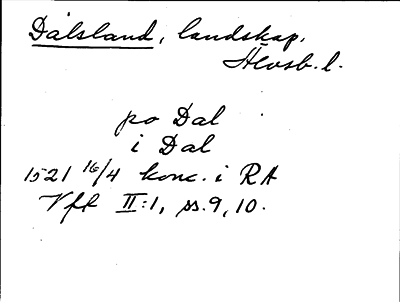 Dalsland, landskap.
Älvsb. l.
po Dal
i Dal
1521 16/4 konc. i RA
Vft II:1, ss. 9, 10.